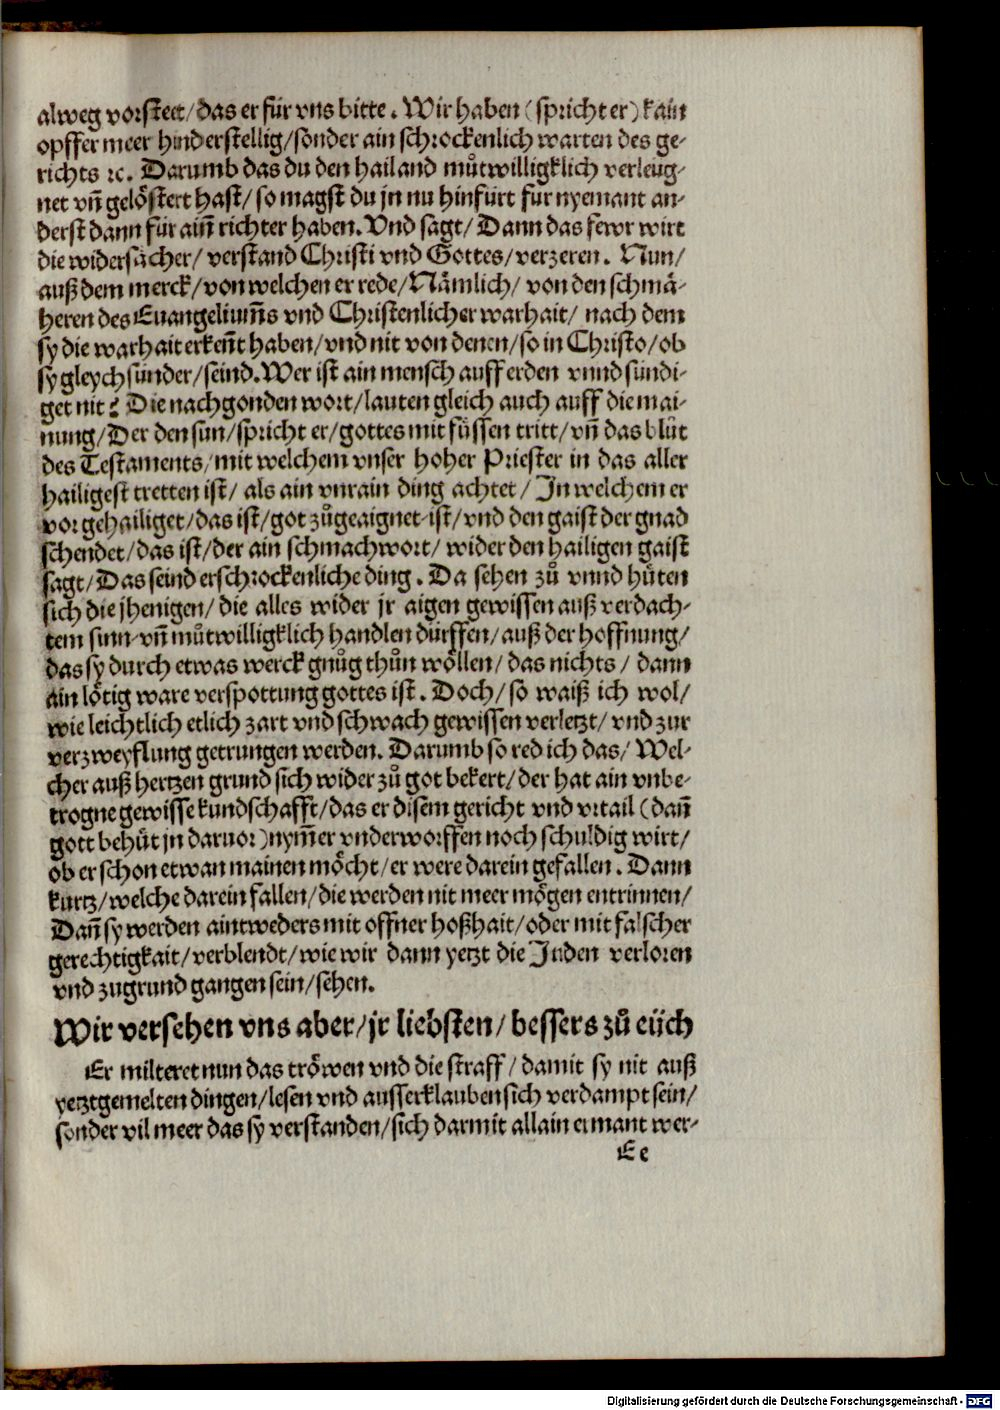 alweg vorsteet/das er für vns bitte. Wir haben (spricht er) kain
opffer meer hinderstellig/sonder ain schrockenlich warten des ge-
richts ꝛc. Darumb das du den hailand můtwilligklich verleug-
net vn̄ gelöstert hast/ so magst du jn nu hinfürt für nyemant an-
derst dann für ain̄ richter haben. Vnd sagt/ Dann das fewr wirt
die widersächer/ verstand Christi vnd Gottes/verzeren. Nun/
auß dem merck/von welchen er rede/Nämlich/ von den schmä-
heren des Euangelium̄s vnd Christenlicher warhait/ nach dem
sy die warhait erken̄t haben/vnd nit von denen/so in Christo/ob
sy gleych sünder/seind. Wer ist ain mensch auff erden vnnd sündi-
get nit? Die nachgonden wort/lauten gleich auch auff die mai-
nung/Der den sun/spricht er/gottes mit füssen tritt/vn̄ das blůt
des Testaments/mit welchem vnser hoher Priester in das aller
hailigest tretten ist/ als ain vnrain ding achtet/ In welchem er
vor gehailiget/das ist/got zůgeaignet ist/vnd den gaist der gnad
schendet/das ist/der ain schmachwort/ wider den hailigen gaist
sagt/Das seind erschrockenliche ding. Da sehen zů vnnd hüten
sich die jhenigen/ die alles wider jr aigen gewissen auß verdach-
tem sinn vn̄ můtwilligklich handlen dürffen/auß der hoffnung/
das sy durch etwas werck gnůg thůn wöllen/das nichts/ dann
ain lötig ware verspottung gottes ist. Doch/so waiß ich wol/
wie leichtlich etlich zart vnd schwach gewissen verletzt/vnd zur
verzweyflung getrungen werden. Darumb so red ich das/ Wel-
cher auß hertzen grund sich wider zů got bekert/der hat ain vnbe-
trogne gewisse kundschafft/das er disem gericht vnd vrtail (dan̄
gott behüt jn daruor) nym̄er vnderworffen noch schuldig wirt/
ob er schon etwan mainen möcht/er were darein gefallen. Dann
kurtz/welche darein fallen/die werden nit meer mögen entrinnen/
Dan̄ sy werden aintweders mit offner boßhait/oder mit falscher
gerechtigkait/verblendt/wie wir dann yetzt die Juden verloren
vnd zugrund gangen sein/sehen.
Wir versehen vns aber/jr liebsten/bessers zů eüch
Er milteret nun das tröwen vnd die straff/damit sy nit auß
yetztgemelten dingen/lesen vnd ausserklauben sich verdampt sein/
sonder vil meer das sy verstanden/sich darmit allain ermant wer-
Ee
Digitalisierung gefördert durch die Deutsche Forschungsgemeinschaft - DFG